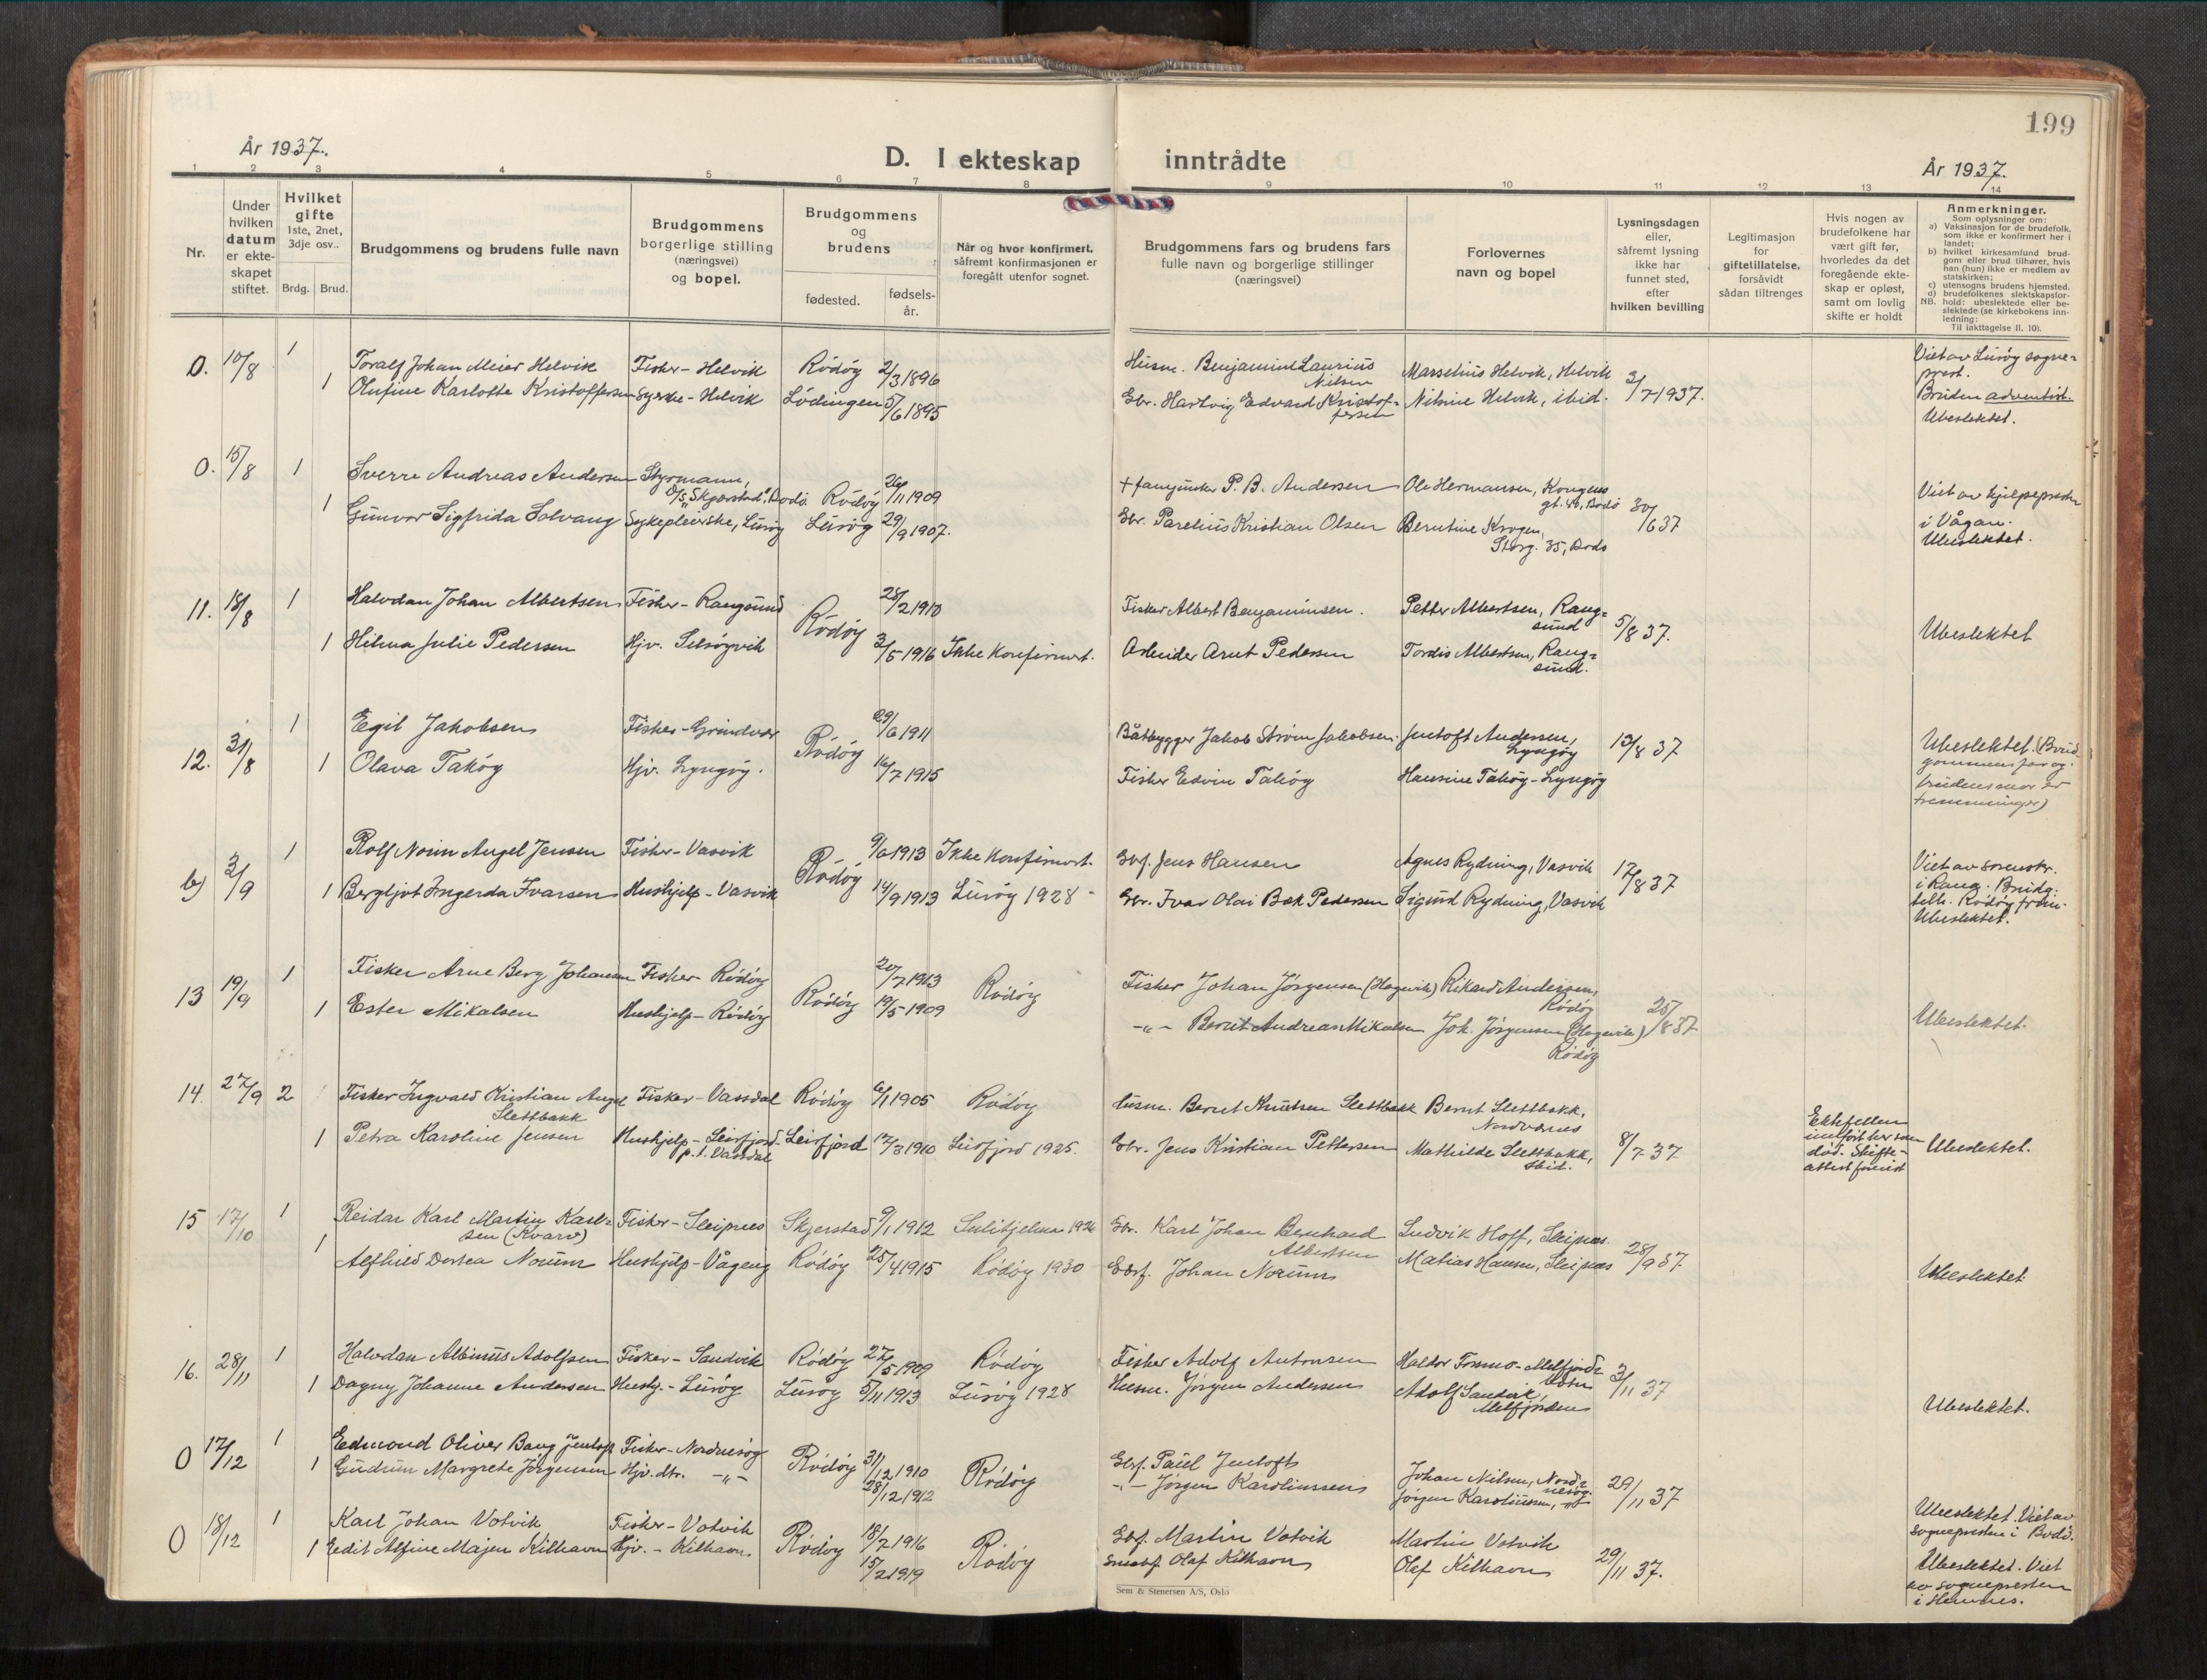 199
År 1937.
D. I ekteskap inntrådte
År 1937.
1 2 3 4 5 6 7 8 9 10 11 12 13 14
Nr.
Under hvilken datum er ekteskapet stiftet.
Hvilket gifte 1ste, 2net, 3dje osv..
Brdg. Brud.
Brudgommens og brudens fulle navn
Brudgommens borgerlige stilling (næringsvei) og bopel.
Brudgommens og brudens
fødested.
fødselsår.
Når og hvor konfirmert, såfremt konfirmasjonen er foregått utenfor sognet.
Brudgommens fars og brudens fars fulle navn og borgerlige stillinger (næringsvei)
Forlovernes navn og bopel
Lysningsdagen eller, såfremt lysning ikke har funnet sted, efter hvilken bevilling
Legitimasjon for giftetillatelse, forsåvidt sådan tiltrenges
Hvis nogen av brudefolkene har vært gift før, hvorledes da det foregående ekteskap er opløst, samt om lovlig skifte er holdt
Anmerkninger.
Som oplysninger om:
a) Vaksinasjon for de brudefolk, som ikke er konfirmert her i landet;
b) hvilket kirkesamfund brudgom eller brud tilhører, hvis han (hun) ikke er medlem av statskirken;
c) utensogns brudens hjemsted.
d) brudefolkenes slektskapsforhold: ubeslektede eller beslektede (se kirkebokens innledning:
NB. Til iakttagelse II. 10).
0. 10/8 1 Toralf Johan Meier Helvik Fisker - Helvik Rödöy 2/3 1896 Husm. Benjamin Laurius Nilsen Marselius Helvik, Helvik 3/7 1937. Viet av Luröy sogneprest.
1 Olufine Karlotte Kristoffersen Syerske - Helvik Lödingen 5/6 1895 Gbr. Hartvig Edvard Kristoffersen Nilsine Helvik, ibid. Bruden adventist. Ubeslektet.
0. 15/8 1 Sverre Andreas Andersen Styrmann, D/S "Skjerstad", Bodö. Rödöy 26/11 1909 + P. B. Andersen Ole Hermansen, Kongens gt. 46, Bodö 30/6 37 Viet av hjelpepresten i Vågan. Ubeslektet.
1 Gunvor Sigfrida Solvang Sykepleierske, Luröy Luröy 29/9 1907. Gbr. Parelius Kristian Olsen Berntine Krogen, Storg. 35, Bodö
11. 18/8 1 Halvdan Johan Albertsen Fisker - Rangsund Rödöy 28/2 1910 Fisker Albert Benjaminsen. Petter Albertsen, Rangsund 5/8 37. Ubeslektet
1 Hilma Julie Pedersen Hjv. Selsöyvik 3/5 1916 Ikke Konfirmert. Arbeider Arnt Pedersen Tordis Albertsen, Rangsund.
12. 31/8 1 Egil Jakobsen Fisker - Grindvær Rödöy 29/6 1911 Båtbygger Jakob Ström Jakobsen. Jentoft Andersen, Lyngöy 13/8 37 Ubeslektet. (Brudgommens far og brudens mor er tremenninger)
1 Olava Taköy Hjv. Lyngöy. 16/7 1915 Fisker Edvin Taköy Hansine Taköy - Lyngöy
b) 3/9 1 Rolf Norin Angel Jensen Fisker - Vasvik Rödöy 9/6 1913 Ikke Konfirmert. Gbf. Jens Hansen Agnes Rydning, Vasvik 17/8 37 Viet av sorenskr. i Rana. Brudg. tilh. Rödöy frim. Ubeslektet.
1 Bergljot Ingerda Ivarsen Hushjelp - Vasvik 14/9 1913 Luröy 1928 - Gbr. Ivar Olai Bæk Pedersen Sigurd Rydning, Vasvik
13 19/9 1 Fisker Arne Berg Johansen Fisker - Rödöy Rödöy 20/7 1913 Rödöy Fisker Johan Jörgensen (Hagevik) Rikard Andersen, Rödöy 25/8 37 Ubeslektet.
1 Ester Mikalsen Hushjelp - Rödöy 19/5 1909 -"- Bernt Andreas Mikalsen Joh. Jörgensen (Hagevik) Rödöy
14. 27/9 2 Fisker Ingvald Kristian Angel Slettbakk Fisker - Vassdal Rödöy 6/1 1905 Rödöy Husm. Bernt Knutsen Slettbakk Bernt Slettbakk, Nordværnes 8/7 37 Ektefellen innfört her som död. Skifteattest forevist Ubeslektet.
1 Petra Karoline Jensen Hushjelp - Leirfjord p.t. Vassdal Leirfjord 12/3 1910 Leirfjord 1925. Gbr. Jens Kristian Pettersen Mathilde Slettbakk, ibid.
15 17/10 1 Reidar Karl Martin Karlsen (Kvarv) Fisker - Sleipnes Skjerstad 9/1 1912 Sulitjelma 1926 Gbr. Karl Johan Bernhard Albertsen Ludvik Hoff, Sleipnes. 28/9 37 Ubeslektet.
1 Alfhild Dortea Norum Hushjelp - Vågeng Rödöy 25/4 1915 Rödöy 1930 Gbf. Johan Norum Matias Hansen, Sleipnes
16. 28/11 1 Halvdan Albinus Adolfsen Fisker - Sandvik Rödöy 27/5 1909 Rödöy Fisker Adolf Antonsen Haldor Tommo - Melfjordbotn 3/11 37 Ubeslektet.
1 Dagny Johanne Andersen Hushj. - Luröy Luröy 5/11 1913 Luröy 1928 Husm. Jörgen Andersen Adolf Sandvik, Melfjorden
0 17/12 1 Edmond Oliver Bang Jentoft Fisker - Nordnesöy Rödöy 31/12 1910 Rödöy Gbf. Paul Jentoft Johan Nilsen, Nordnesöy. 29/11 37 Ubeslektet. Viet av sognepresten i Bodö.
1 Gudrun Margrete Jörgensen Hjv. dtr. -"- 28/12 1912 -"- Jörgen Karoliussen Jörgen Karoliussen,
0 18/12 1 Karl Johan Votvik Fisker - Votvik Rödöy 18/2 1916 Rödöy Gbf. Martin Votvik Martin Votvik 29/11 37. Ubeslektet. Viet av sognepresten i Hemnes.
1 Edit Alfine Majen Kilhavn Hjv. - Kilhavn 15/2 1919 Småbf. Olaf Kilhavn Olaf Kilhavn
Sem & Stenersen A/S, Oslo